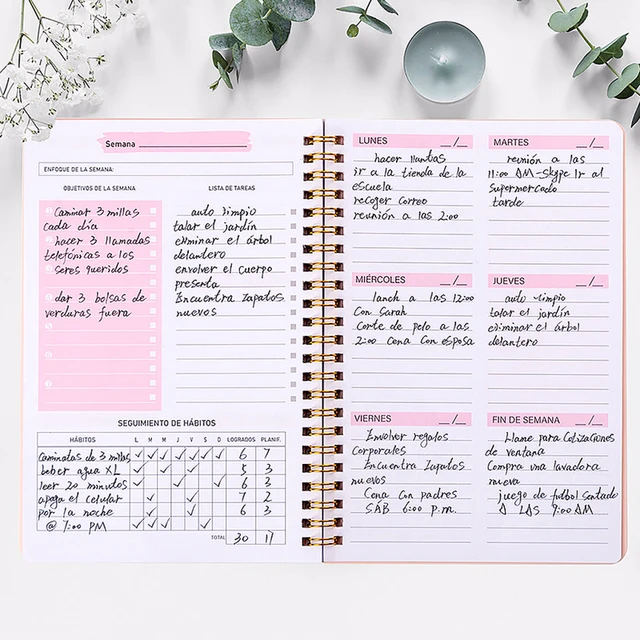 Semana
ENFOQUE DE LA SEMANA:
OBJETIVOS DE LA SEMANA
Caminar 3 millas
cada día
hacer 3 llamadas
telefónicas a los
seres queridos
dar 3 bolsas de
verduras fuera
LISTA DE TAREAS
auto limpio
talar el jardín
eliminar el árbol
delantero
envolver el cuerpo
presenta
Encuentra Zapatos
nuevos
SEGUIMIENTO DE HÁBITOS
HÁBITOS L M M J V S D LOGRADOS PLANIF.
Caminatas de 3 millas ✓ ✓ ✓ ✓ ✓ ✓ 6 7
beber agua XL 5 3
leer 20 minutos 6 3
apaga el celular 7 2
por la noche 6 3
@ 7:00 PM
TOTAL 30 17
LUNES __/__
hacer
ir a la tienda de la
escuela
recoger correo
reunión a las 2:00
MARTES __/__
reunión a las
11:00 AM-Skype Ir al
supermercado
tarde
MIÉRCOLES __/__
lanch a las 12:00
con Sarah
Corte de pelo a las
2:00 Cena con esposa
JUEVES __/__
auto limpio
talar el jardín
eliminar el árbol
delantero
VIERNES __/__
Envolver regalos
corporales
Encuentra Zapatos
nuevos
Cena con padres
SAB 6:00 p.m.
FIN DE SEMANA __/__
Llame para Cotizaciones
de ventana
Compra una lavadora
nueva
juego de futbol sentado
A LAS 9:00 AM